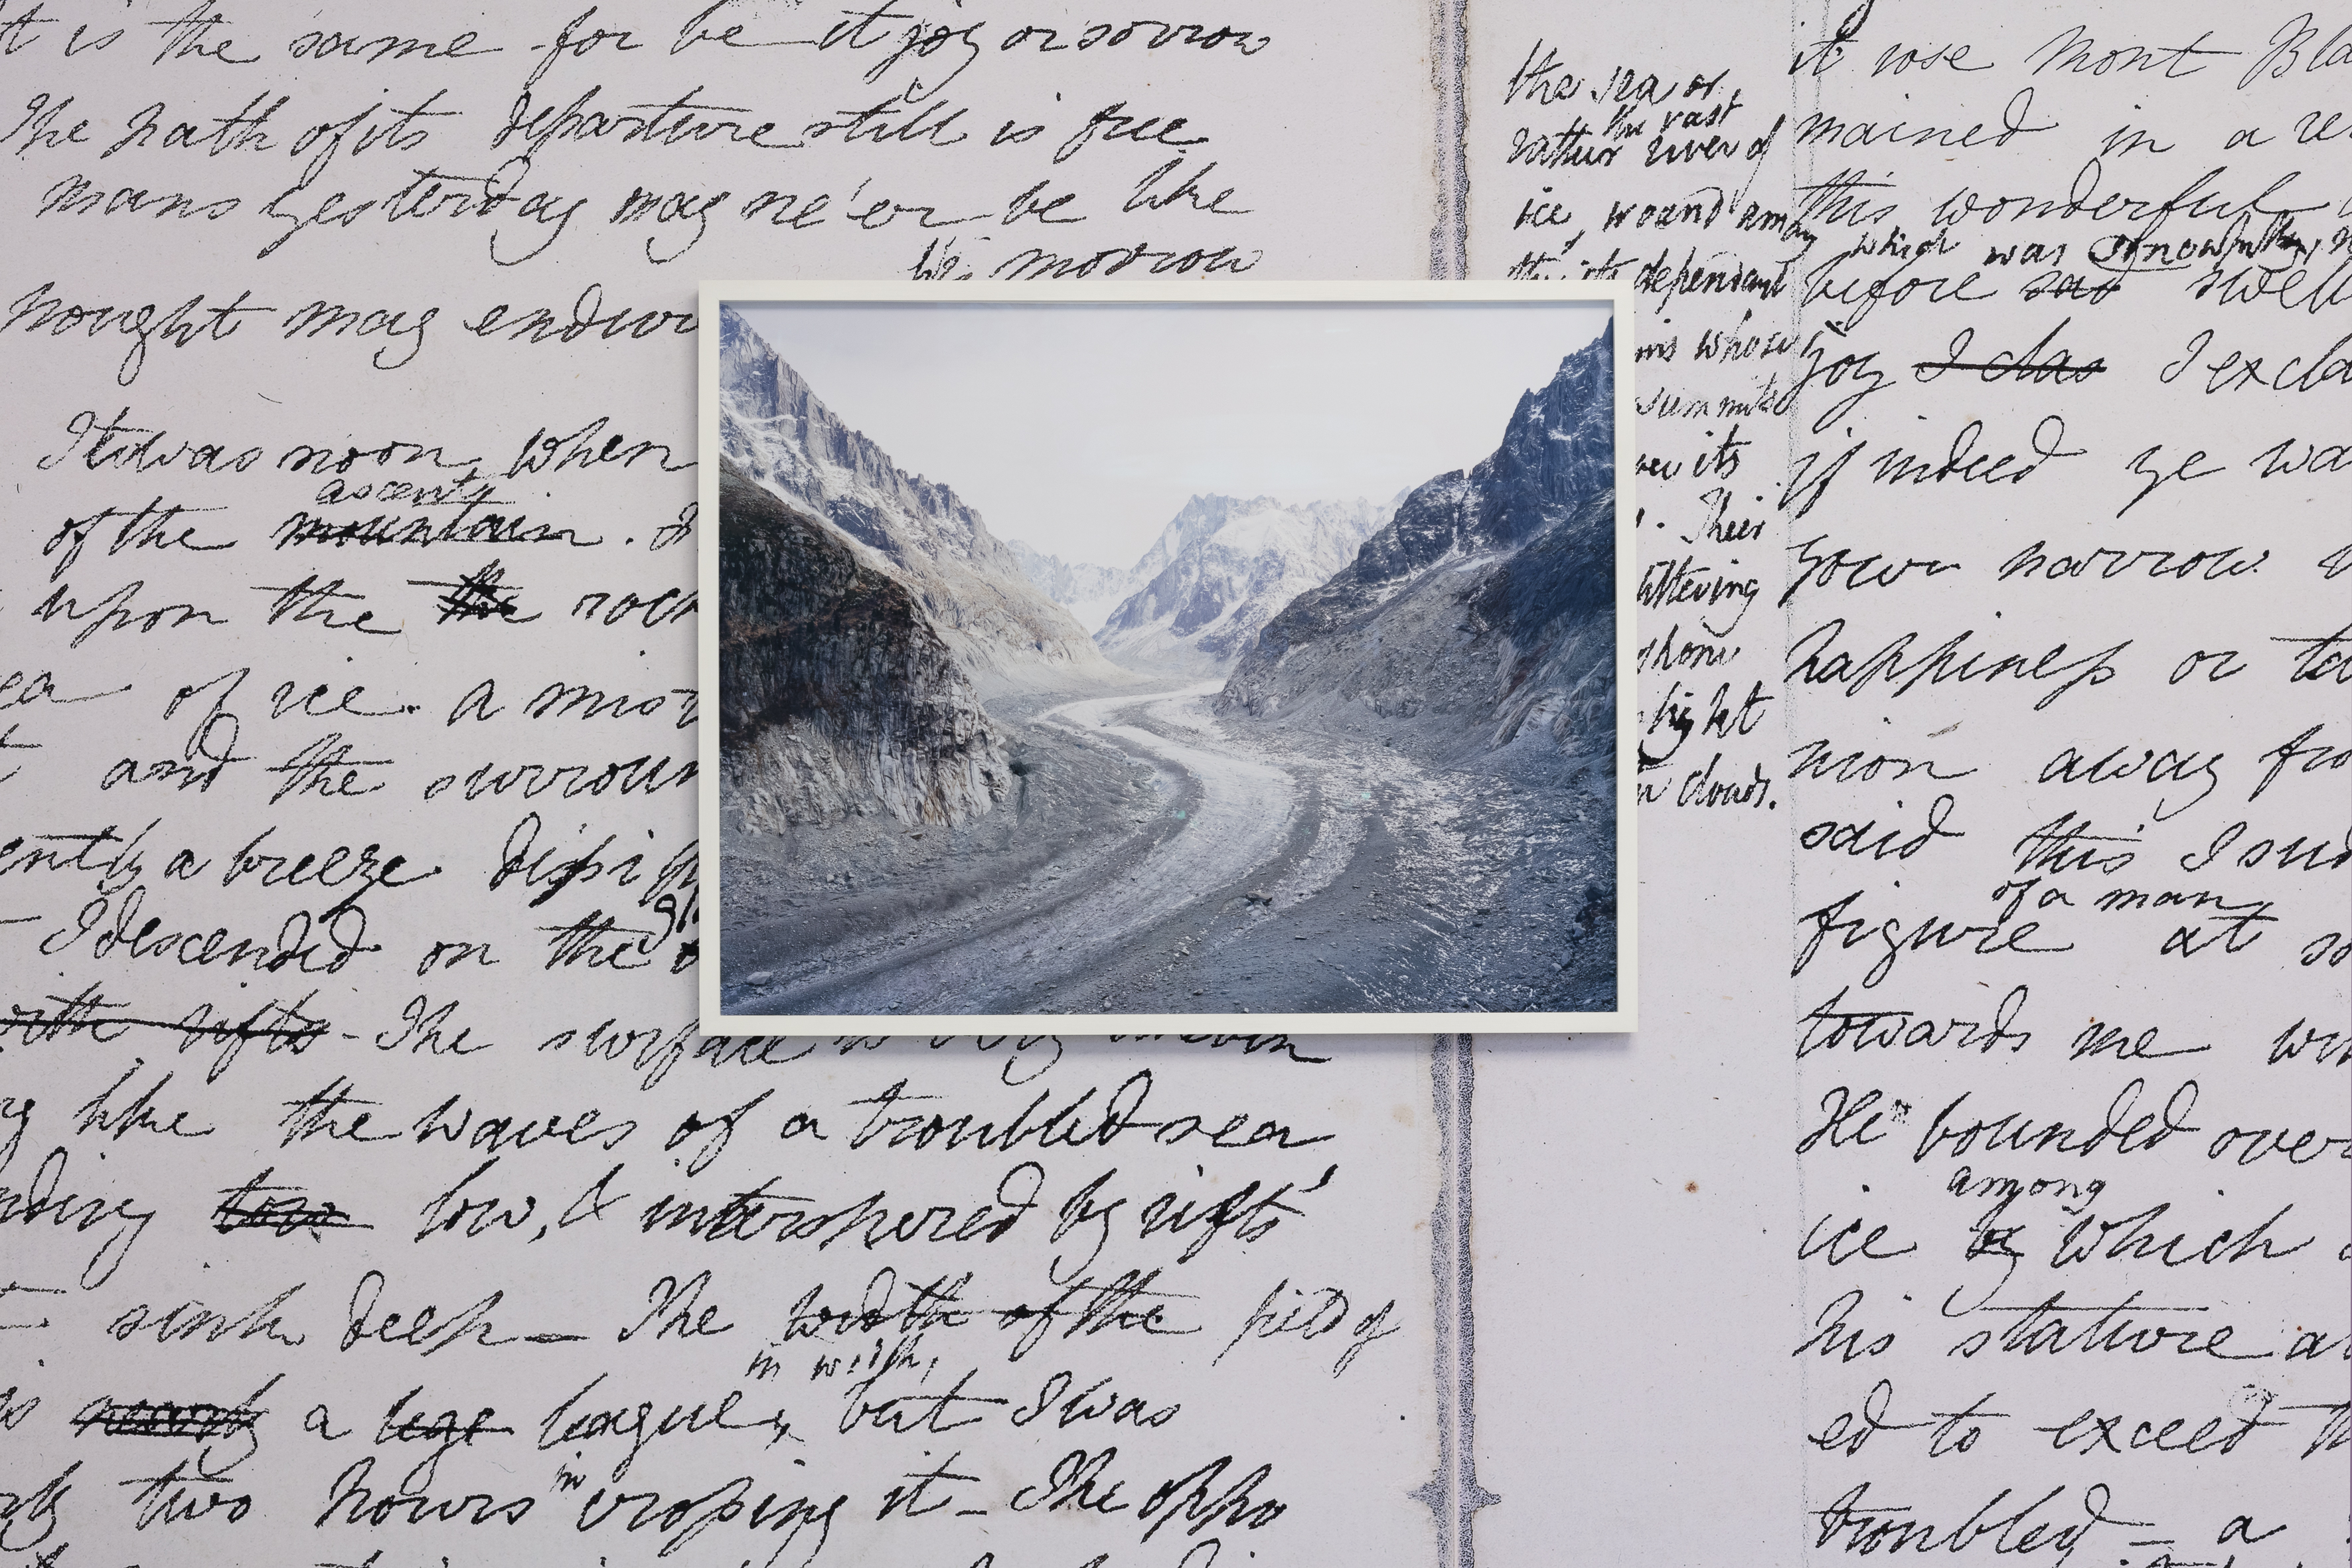 t is the same for be it joy or sorrow
The path of its departure still is free
Mans yesterday may ne'er be like
his morrow
Nought may endur
It was noon, when
ascent
of the mountain.
upon the the rock
ea of ice. A mist
and the surroun
ently a breeze dissip
I descended on the
with rifts - The surface is very uneven
ng like the waves of a troubled sea
nding low low, & interspered by rifts
sink deep — The width of the field of
in width,
is nearly a lege league, but I was
ly two hours in crossing it — The oppo
the sea or,
the vast
rather river of
ice, wound among
its dependant
ins whose
summits
its
. Their
littering
shone
light
clouds.
it rose Mont Bla
mained in a re
this wonderful
which was
before sad swell
joy I clas I excla
if indeed ye wa
your narrow
happiness or ta
nion away fro
said this I sud
of a man
figure at so
towards me wit
He bounded over
among
ice by which
his stature a
ed to exceed
troubled — a